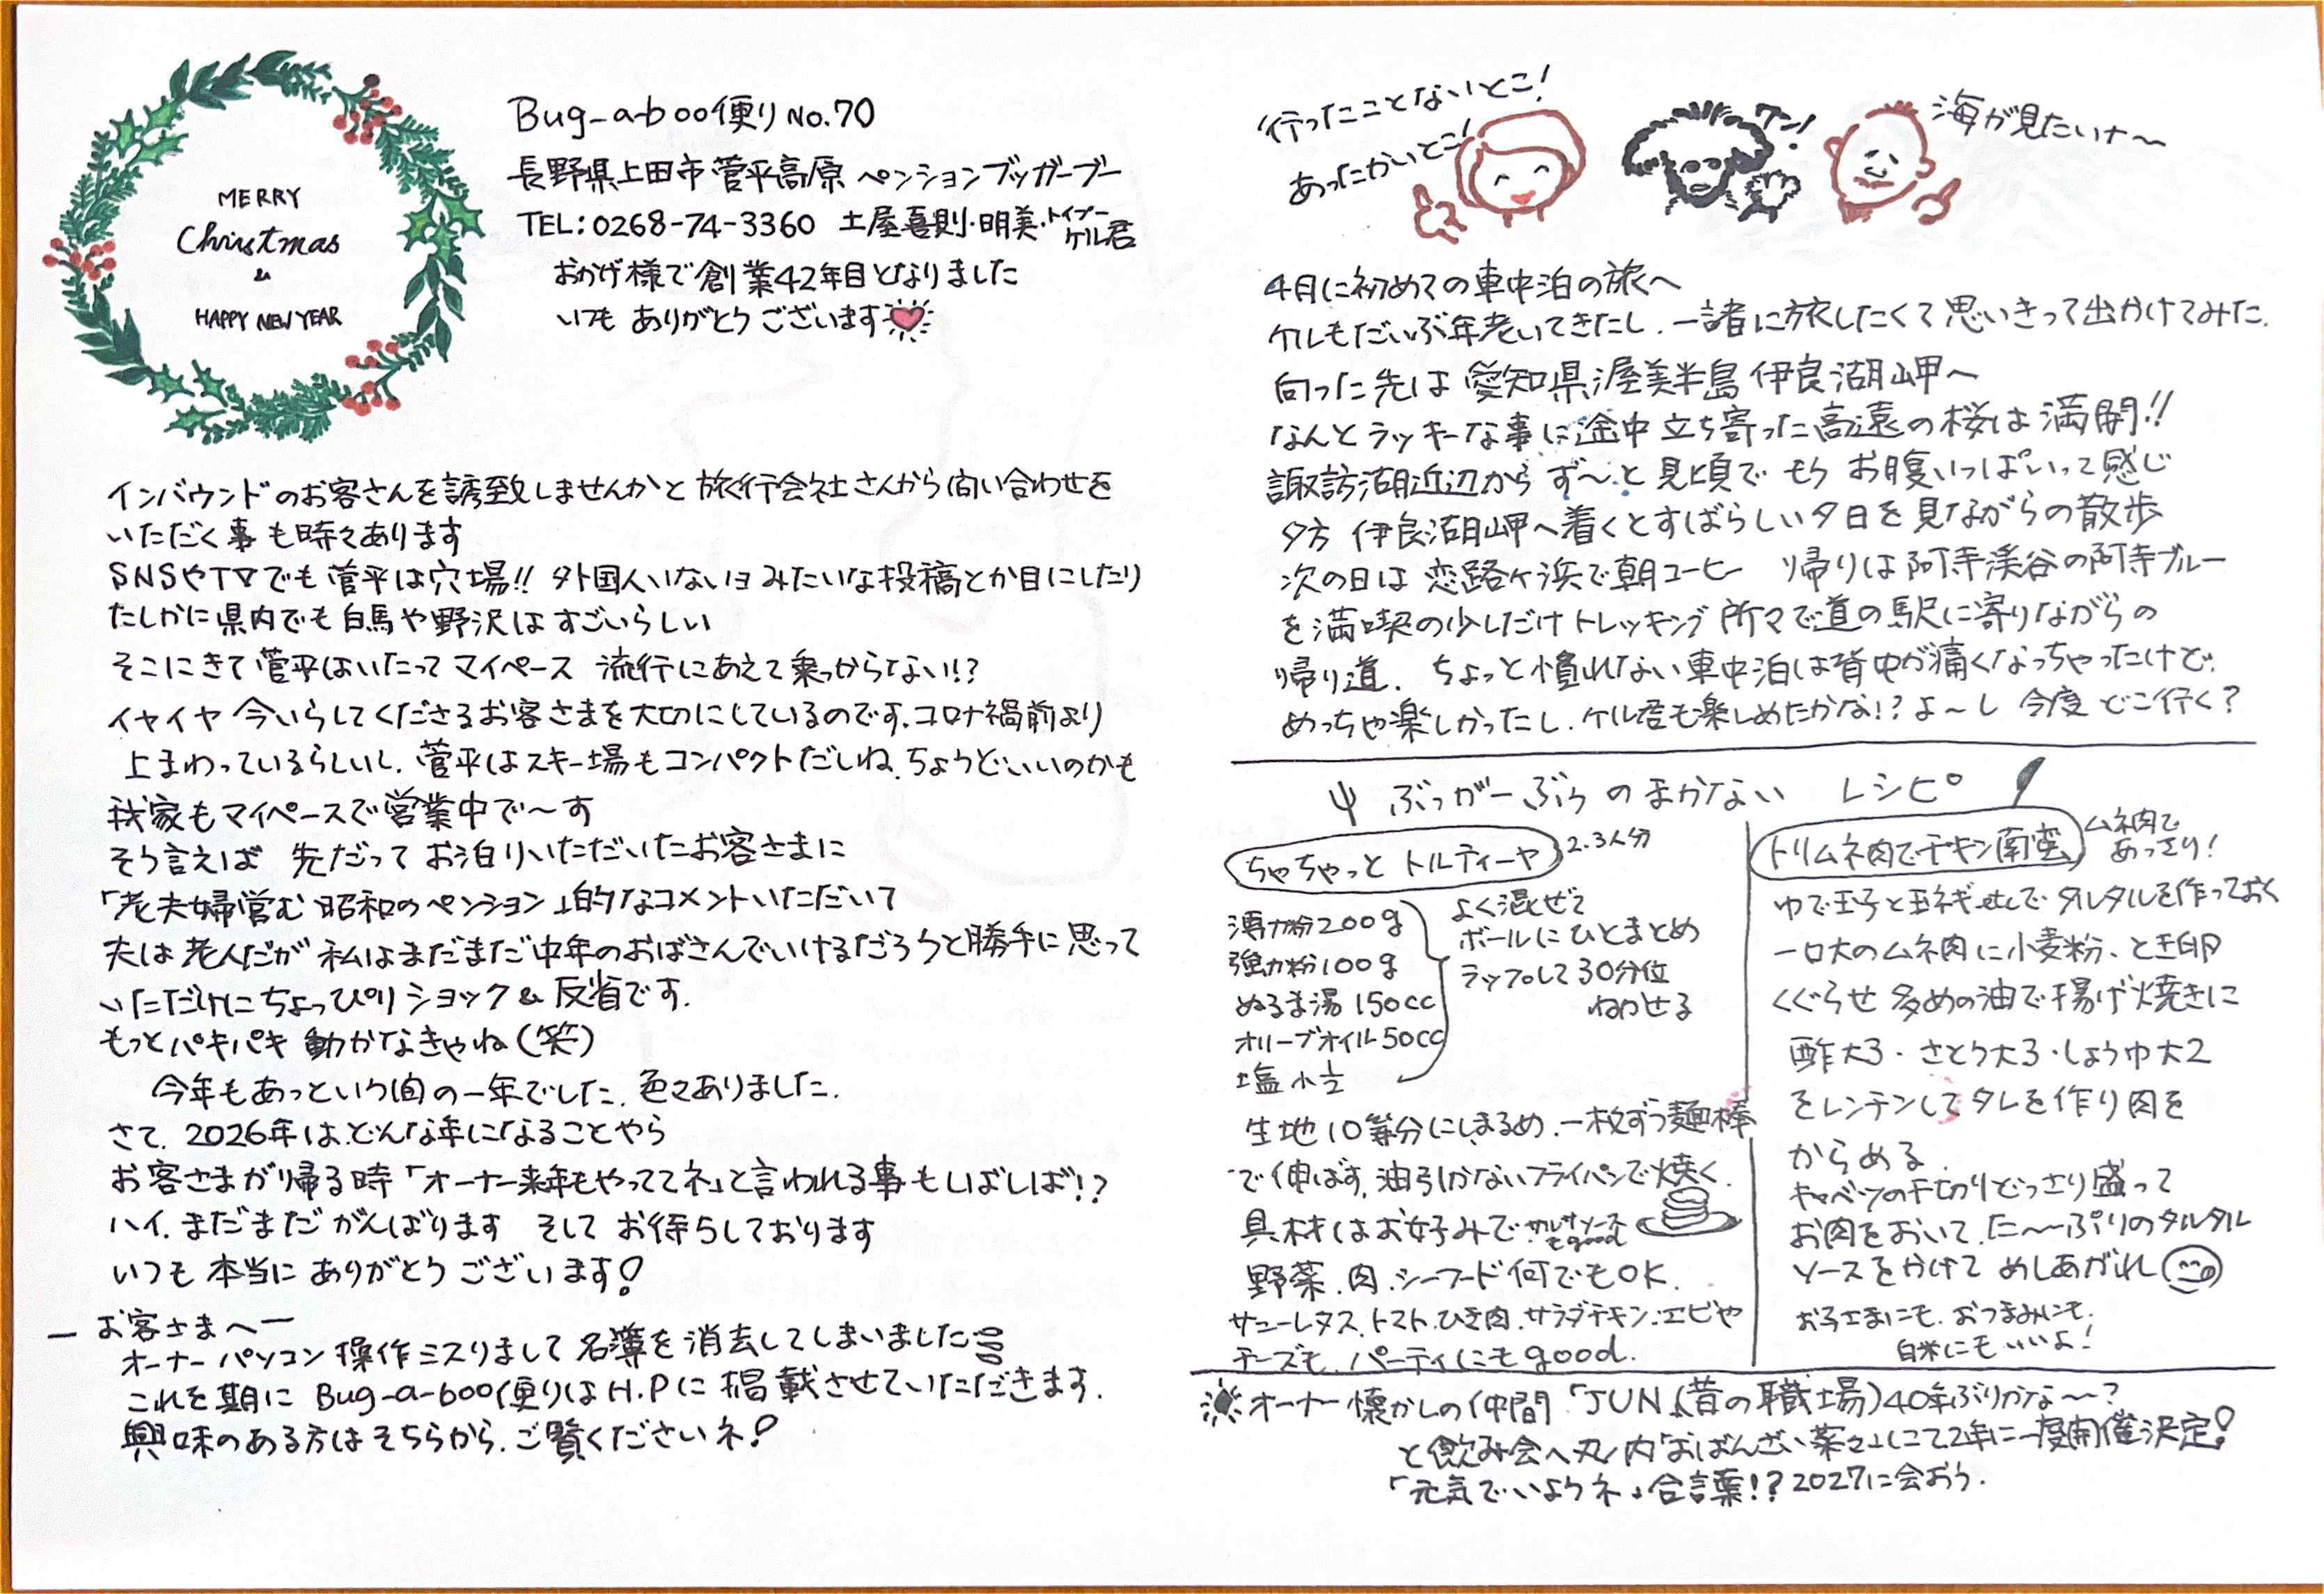 MERRY
Christmas
&
HAPPY NEW YEAR
Bug-a-boo便りNo.70
長野県上田市菅平高原 ペンションブッガーブー
TEL:0268-74-3360 土屋喜則・明美・トイプー ケル君
おかげ様で創業42年目となりました
いつも ありがとう ございます
インバウンドのお客さんを誘致しませんかと旅行会社さんから問い合わせを
いただく事も時々あります
SNSやTVでも菅平は穴場!! 外国人いないヨみたいな投稿とか目にしたり
たしかに県内でも白馬や野沢はすごいらしい
そこにきて菅平はいたってマイペース 流行にあえて乗っからない!?
イヤイヤ今いらしてくださるお客さまを大切にしているのです.コロナ禍前より
上まわっているらしいし.菅平はスキー場もコンパクトだしね.ちょうどいいのかも
我家もマイペースで営業中で〜す
そう言えば 先だって お泊りいただいたお客さまに
「老夫婦営む昭和のペンション」的なコメントいただいて
夫は老人だが私はまだまだ中年のおばさんでいけるだろうと勝手に思って
いただけにちょっぴりショック&反省です.
もっとパキパキ動かなきゃね(笑)
今年もあっという間の一年でした.色々ありました.
さて.2026年は.どんな年になることやら
お客さまが帰る時「オーナー来年もやっててネ」と言われる事もしばしば!?
ハイ.まだまだがんばります そして お待ちしております
いつも本当にありがとう ございます!
ー お客さまへ ー
オーナーパソコン操作ミスりまして名簿を消去してしまいました
これを期に Bug-a-boo便りはH.Pに掲載させていただきます.
興味のある方はそちらから.ご覧くださいネ!
行ったことないとこ!
あったかいとこ!
ワン!
海が見たいナ〜
4月に初めての車中泊の旅へ
ケルもだいぶ年老いてきたし.一諸に旅したくて思いきって出かけてみた.
向った先は愛知県渥美半島伊良湖岬へ
なんとラッキーな事に途中立ち寄った高遠の桜は満開!!
諏訪湖近辺からず〜っと見頃で もう お腹いっぱいって感じ
夕方 伊良湖岬へ着くとすばらしい夕日を見ながらの散歩
次の日は 恋路ヶ浜で朝コーヒー 帰りは阿寺渓谷の阿寺ブルー
を満喫の少しだけトレッキング 所々で道の駅に寄りながらの
帰り道. ちょっと慣れない車中泊は背中が痛くなっちゃったけど.
めっちゃ楽しかったし.ケル君も楽しめたかな!?よ〜し 今度どこ行く?
ぶっがーぶぅのまかない レシピ
ちゃちゃっと トルティーヤ 2.3人分
薄力粉200g
強力粉100g
ぬるま湯150cc
オリーブオイル50cc
塩小½
よく混ぜて
ボールにひとまとめ
ラップして30分位
ねかせる
生地10等分にしまるめ.一枚ずつ麺棒
で伸ばす.油引かないフライパンで焼く.
具材はお好みで サルサソースもgood
野菜.肉.シーフード何でもOK.
サニーレタス.トマト.ひき肉.サラダチキン.エビや
チーズも.パーティにもgood.
トリムネ肉でチキン南蛮 ムネ肉であっさり!
ゆで玉子と玉ネギ でタルタルを作っておく
一口大のムネ肉に小麦粉、とき卵
くぐらせ 多めの油で揚げ焼きに
酢大3・さとう大3・しょうゆ大2
をレンチンしてタレを作り肉を
からめる.
キャベツの千切りどっさり盛って
お肉をおいて.た〜〜ぷりのタルタル
ソースをかけて めしあがれ
お子さまにも.おつまみにも.
白米にもいいよ!
オーナー懐かしの仲間「JUN」(昔の職場)40年ぶりかな〜?
と飲み会へ丸ノ内「おばんざい菜々」にて2年に一度開催決定!
「元気でいようネ」合言葉!?2027に会おう.